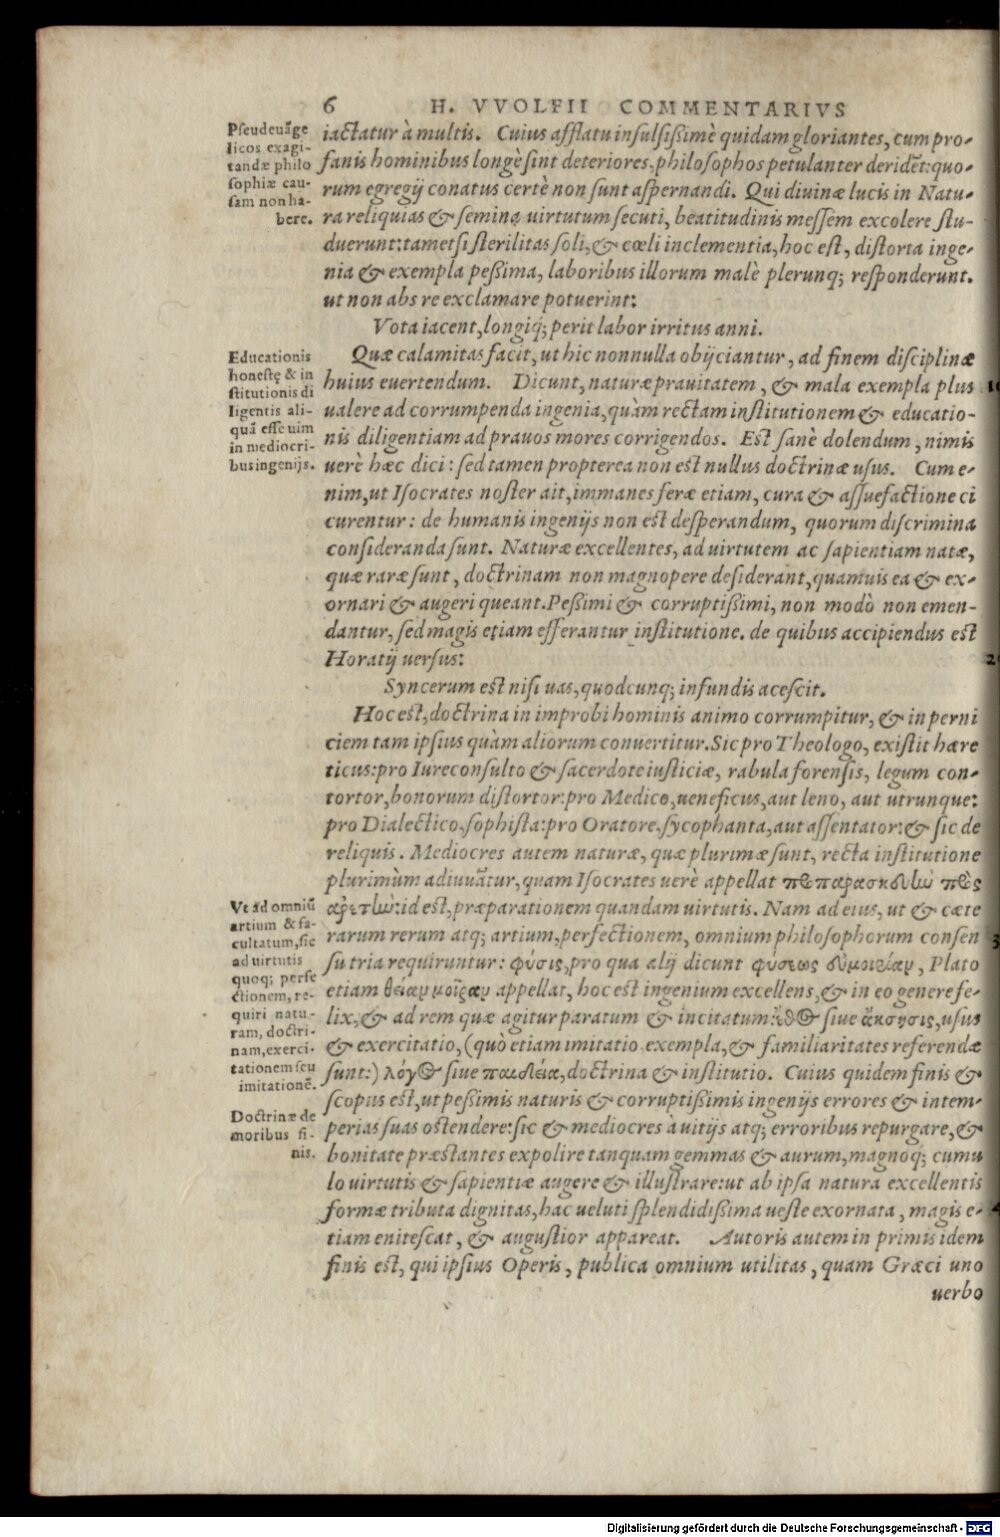 6 H. VVOLFII COMMENTARIVS
Pseudeuãge
licos exagi-
tandæ philo
sophiæ cau-
sam non ha-
bere.
iactatur à multis. Cuius afflatu insulsißimè quidam gloriantes, cum pro-
fanis hominibus longè sint deteriores, philosophos petulanter deridẽt: quo-
rum egregij conatus certè non sunt aspernandi. Qui diuinæ lucis in Natu-
ra reliquias & semina uirtutum secuti, beatitudinis messem excolere stu-
duerunt: tametsi sterilitas soli, & cœli inclementia, hoc est, distorta inge-
nia & exempla peßima, laboribus illorum malè plerunq; responderunt.
ut non abs re exclamare potuerint:
Vota iacent, longiq; perit labor irritus anni.
Educationis
honestę & in
stitutionis di
ligentis ali-
quã esse uim
in mediocri-
bus ingenijs.
Quæ calamitas facit, ut hic nonnulla obijciantur, ad finem disciplinæ
huius euertendum. Dicunt, naturæ prauitatem, & mala exempla plus
ualere ad corrumpenda ingenia, quàm rectam institutionem & educatio-
nis diligentiam ad prauos mores corrigendos. Est sanè dolendum, nimis
uerè hæc dici: sed tamen propterea non est nullus doctrinæ usus. Cum e-
nim, ut Isocrates noster ait, immanes feræ etiam, cura & assuefactione ci
curentur: de humanis ingenijs non est desperandum, quorum discrimina
consideranda sunt. Naturæ excellentes, ad uirtutem ac sapientiam natæ,
quæ raræ sunt, doctrinam non magnopere desiderant, quamuis ea & ex-
ornari & augeri queant. Peßimi & corruptißimi, non modò non emen-
dantur, sed magis etiam efferantur institutione. de quibus accipiendus est
Horatij uersus:
Syncerum est nisi uas, quodcunq; infundis acescit.
Hoc est, doctrina in improbi hominis animo corrumpitur, & in perni
ciem tam ipsius quàm aliorum conuertitur. Sic pro Theologo, existit hære
ticus: pro Iureconsulto & sacerdote iusticiæ, rabula forensis, legum con-
tortor, bonorum distortor: pro Medico, ueneficus, aut leno, aut utrunque:
pro Dialectico, sophista: pro Oratore, sycophanta, aut assentator: & sic de
reliquis. Mediocres autem naturæ, quæ plurimæ sunt, recta institutione
plurimùm adiuuãtur, quam Isocrates uerè appellat παρασκευὼ πρὸς
Vt ad omniũ
artium & fa-
cultatum, sic
ad uirtutis
quoq; perfe
ctionem, re-
quiri natu-
ram, doctri-
nam, exerci-
tationem seu
imitationẽ.
ἀρετὼ: id est, præparationem quandam uirtutis. Nam ad eius, ut & cæte
rarum rerum atq; artium, perfectionem, omnium philosophorum consen
su tria requiruntur: φύσις, pro qua alij dicunt φύσεως εὐμοιρίαν, Plato
etiam θείαν μοῖραν appellat, hoc est ingenium excellens, & in eo genere fe-
lix, & ad rem quæ agitur paratum & incitatum: ἦθος siue ἄσκησις, usus
& exercitatio, (quò etiam imitatio exempla, & familiaritates referendæ
sunt:) λόγος siue παιδεία, doctrina & institutio. Cuius quidem finis &
Doctrinæ de
moribus fi-
nis.
scopus est, ut peßimis naturis & corruptißimis ingenijs errores & intem-
perias suas ostendere: sic & mediocres a uitijs atq; erroribus repurgare, &
bonitate præstantes expolire tanquam gemmas & aurum, magnoq; cumu
lo uirtutis & sapientiæ augere & illustrare: ut ab ipsa natura excellentis
formæ tributa dignitas, hac ueluti splendidißima ueste exornata, magis e-
tiam enitescat, & augustior appareat. Autoris autem in primis idem
finis est, qui ipsius Operis, publica omnium utilitas, quam Græci uno
uerbo
Digitalisierung gefördert durch die Deutsche Forschungsgemeinschaft - DFG